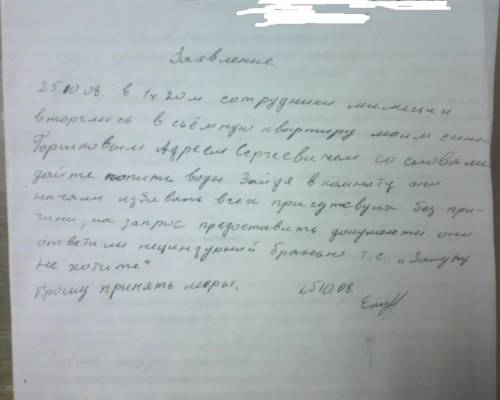 Заявление
25.10.08. в 1ч 20м сотрудники милиции
вторглись в сьёмную квартиру моим сыном
Горшковым Адреем Сергеевичем со словами
дайте попить воды. Зайдя в комнату они
начали избивать всех присутсвующих без при-
чины, на запрос предоставить документы они
ответили нецензурной бранью т.с. „Залупу
не хотите"
Прошу принять меры. 25.10.08.